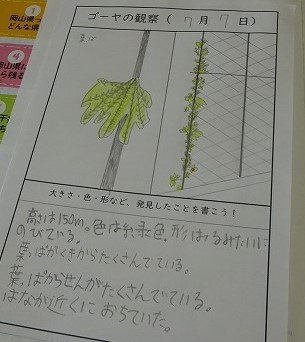 1
岡山県
どんな県
4
岡山県に
ら残る
ゴーヤの観察（7月7日）
葉っぱ
大きさ・色・形など、発見したことを書こう！
高さは150m。色は緑色。形はあみみたいに
のびている。
葉っぱがくきからたくさんでている。
葉っぱからせんがたくさんでている。
はなが近くにおちていた。